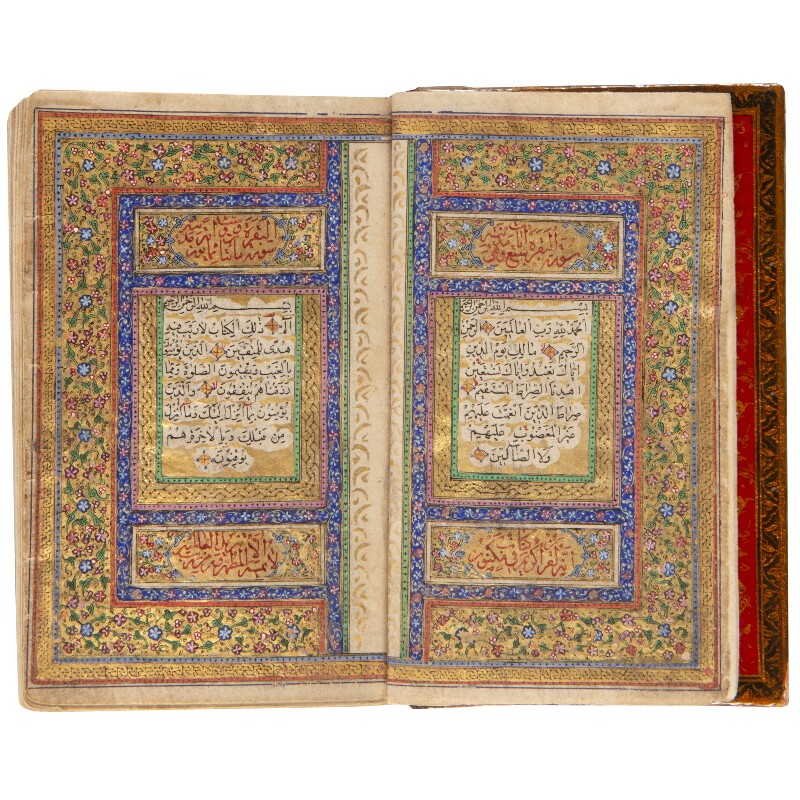 سورة
بسم الله الرحمن الرحيم
الحمد لله رب العالمين الرحمن
الرحيم مالك يوم الدين
اياك نعبد واياك نستعين
اهدنا الصراط المستقيم
صراط الذين انعمت عليهم
غير المغضوب عليهم
ولا الضالين
انه لقران كريم في كتاب مكنون
سورة البقرة
بسم الله الرحمن الرحيم
الم ذلك الكتاب لا ريب فيه
هدى للمتقين الذين يؤمنون
بالغيب ويقيمون الصلوة ومما
رزقناهم ينفقون والذين
يؤمنون بما انزل اليك وما انزل
من قبلك وبالاخرة هم
يوقنون
لا يمسه الا المطهرون تنزيل من رب العالمين